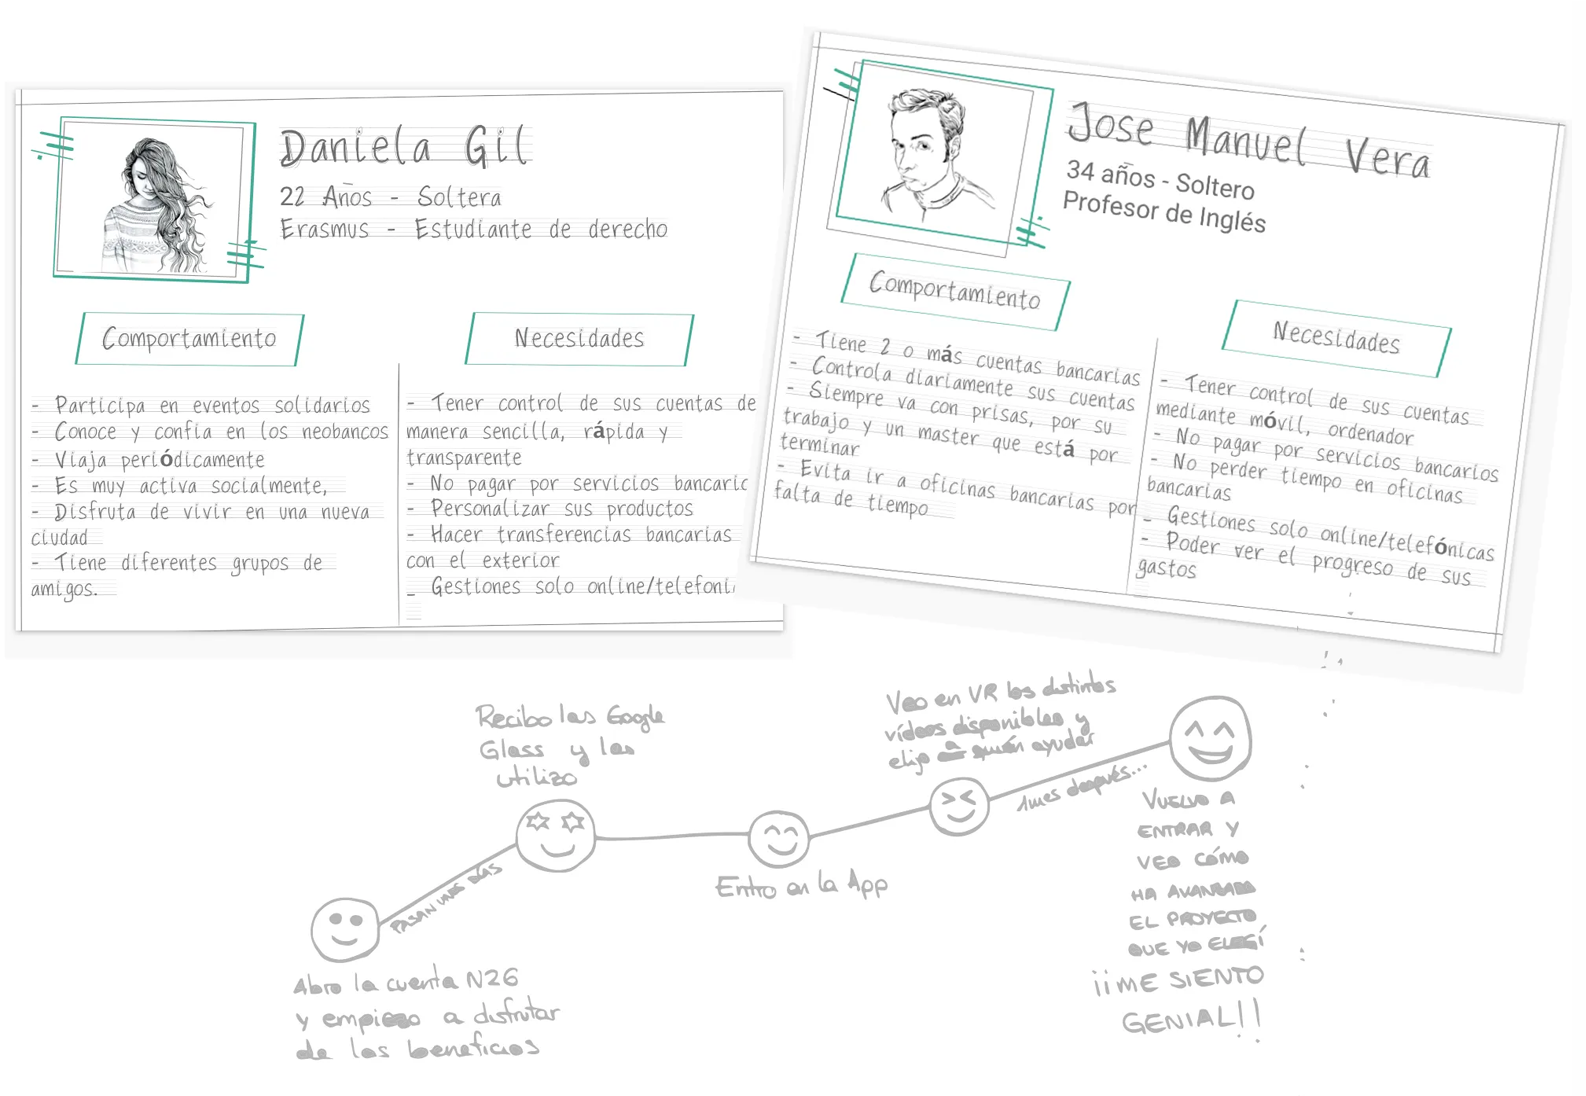 Daniela Gil
22 Años - Soltera
Erasmus - Estudiante de derecho
Comportamiento
- Participa en eventos solidarios
- Conoce y confia en los neobancos
- Viaja periódicamente
- Es muy activa socialmente,
- Disfruta de vivir en una nueva
ciudad
- Tiene diferentes grupos de
amigos.
Necesidades
- Tener control de sus cuentas de
manera sencilla, rápida y
transparente
- No pagar por servicios bancaric
- Personalizar sus productos
- Hacer transferencias bancarias
con el exterior
_ Gestiones solo online/telefoni
Jose Manuel Vera
34 años - Soltero
Profesor de Inglés
Comportamiento
- Tiene 2 o más cuentas bancarias
- Controla diariamente sus cuentas
- Siempre va con prisas, por su
trabajo y un master que está por
terminar
- Evita ir a oficinas bancarias por
falta de tiempo
Necesidades
- Tener control de sus cuentas
mediante móvil, ordenador
- No pagar por servicios bancarios
- No perder tiempo en oficinas
bancarias
- Gestiones solo online/telefónicas
- Poder ver el progreso de sus
gastos
Abro la cuenta N26
y empiezo a disfrutar
de los beneficios
PASAN UNOS DÍAS
Recibo las Google
Glass y las
utilizo
Entro en la App
Veo en VR los distintos
vídeos disponibles y
elijo a quién ayudar
1 mes después...
VUELVO A
ENTRAR Y
VEO CÓMO
HA AVANZADO
EL PROYECTO
QUE YO ELEGÍ
¡¡ME SIENTO
GENIAL!!